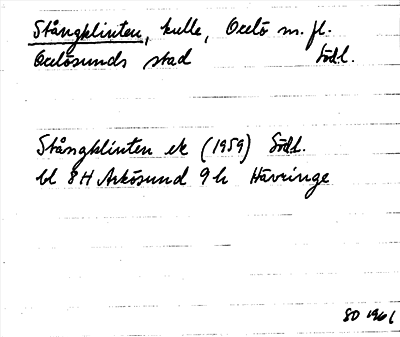 Stångklinten, kulle, Oxelö m. fl.
Oxelösunds stad Södl.
Stångklinten ek (1959) Södl.
bl 8H Arkösund 9h Hävringe
SO 1961